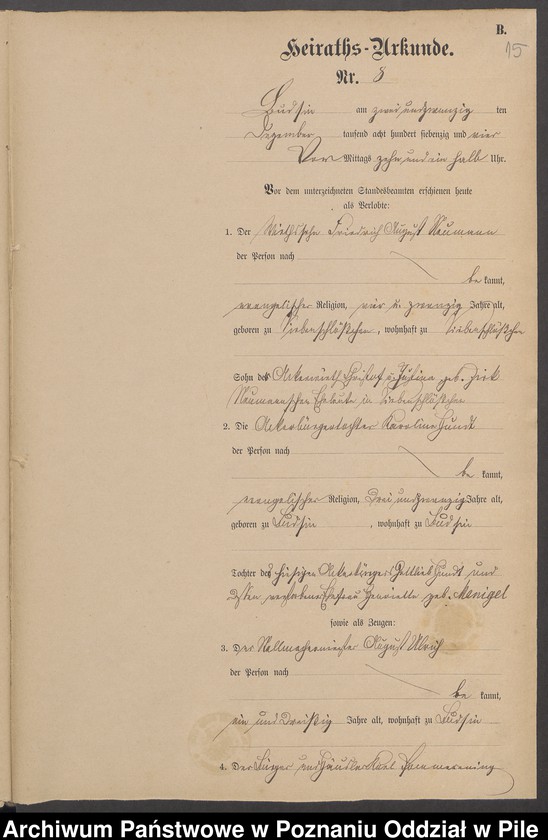 B.
15
Heiraths-Urkunde.
Nr. 8
Budsin am zwei und zwanzig ten
Dezember tausend acht hundert siebenzig und vier
Vor Mittags zehn und ein halb Uhr.
Vor dem unterzeichneten Standesbeamten erschienen heute
als Verlobte:
1. Der Wirthssohn Friedrich August Neumann
der Person nach
be kannt,
evangelischer Religion, vier u. zwanzig Jahre alt,
geboren zu Siebenschlößchen, wohnhaft zu Siebenschlößchen
Sohn des Ackerwirth Christof u. Justina geb.
Neumannschen Eheleute in Siebenschlößchen
2. Die Ackerbürgertochter Karoline Hundt
der Person nach
be kannt,
evangelischer Religion, Drei und zwanzig Jahre alt,
geboren zu Budsin, wohnhaft zu Budsin
Tochter des hiesigen Ackerbürgers Gottlieb Hundt und
dessen verstorbene Ehefrau Henriette geb. Meniget
sowie als Zeugen:
3. Der Stellmachermeister August
der Person nach
be kannt,
ein und Dreißig Jahre alt, wohnhaft zu Budsin
4. Der Bürger und Händler Karl Pommerening
Archiwum Państwowe w Poznaniu Oddział w Pile